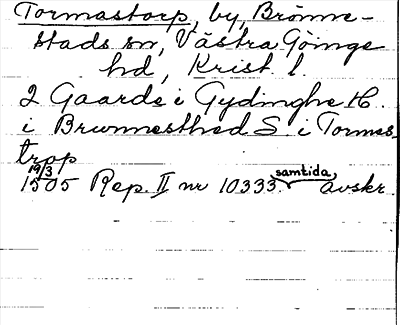 Tormastorp, by, Brönne-
stads sn, Västra Göinge
hd, Krist. l.
2 Gaarde i Gydinghe H.
i Brunnesthed S. i Tormes-
trop
19/3
1505 Rep. II nr 10333. samtida, avskr.